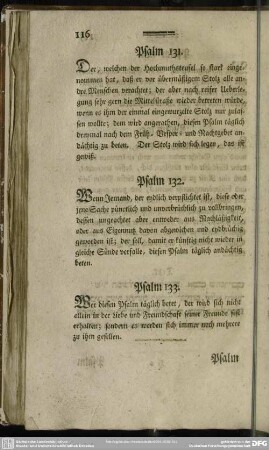 116
Psalm 131.
Der, welchen der Hochmuthsteufel so stark einge-
nommen hat, daß er vor übermäßigem Stolz alle an-
dre Menschen verachtet; der aber nach reifer Ueberle-
gung sehr gern die Mittelstraße wieder betreten würde,
wenn es ihm der einmal eingewurzelte Stolz nur zulas-
sen wollte; dem wird angerathen, diesen Psalm täglich
dreymal nach dem Früh- Vesper- und Nachtgebet an-
dächtig zu beten. Der Stolz wird sich legen, das ist
gewiß.
Psalm 132.
Wenn Jemand, der eydlich verpflichtet ist, diese oder
jene Sache pünctlich und unverbrüchlich zu vollbringen,
dessen ungeachtet aber entweder aus Nachläßigkeit,
oder aus Eigennutz davon abgewichen und eydbrüchig
geworden ist; der soll, damit er künftig nicht wieder in
gleiche Sünde verfalle, diesen Psalm täglich andächtig
beten.
Psalm 133.
Wer diesen Psalm täglich betet, der wird sich nicht
allein in der Liebe und Freundschaft seiner Freunde fest
erhalten; sondern es werden sich immer noch mehrere
zu ihm gesellen.
Psalm